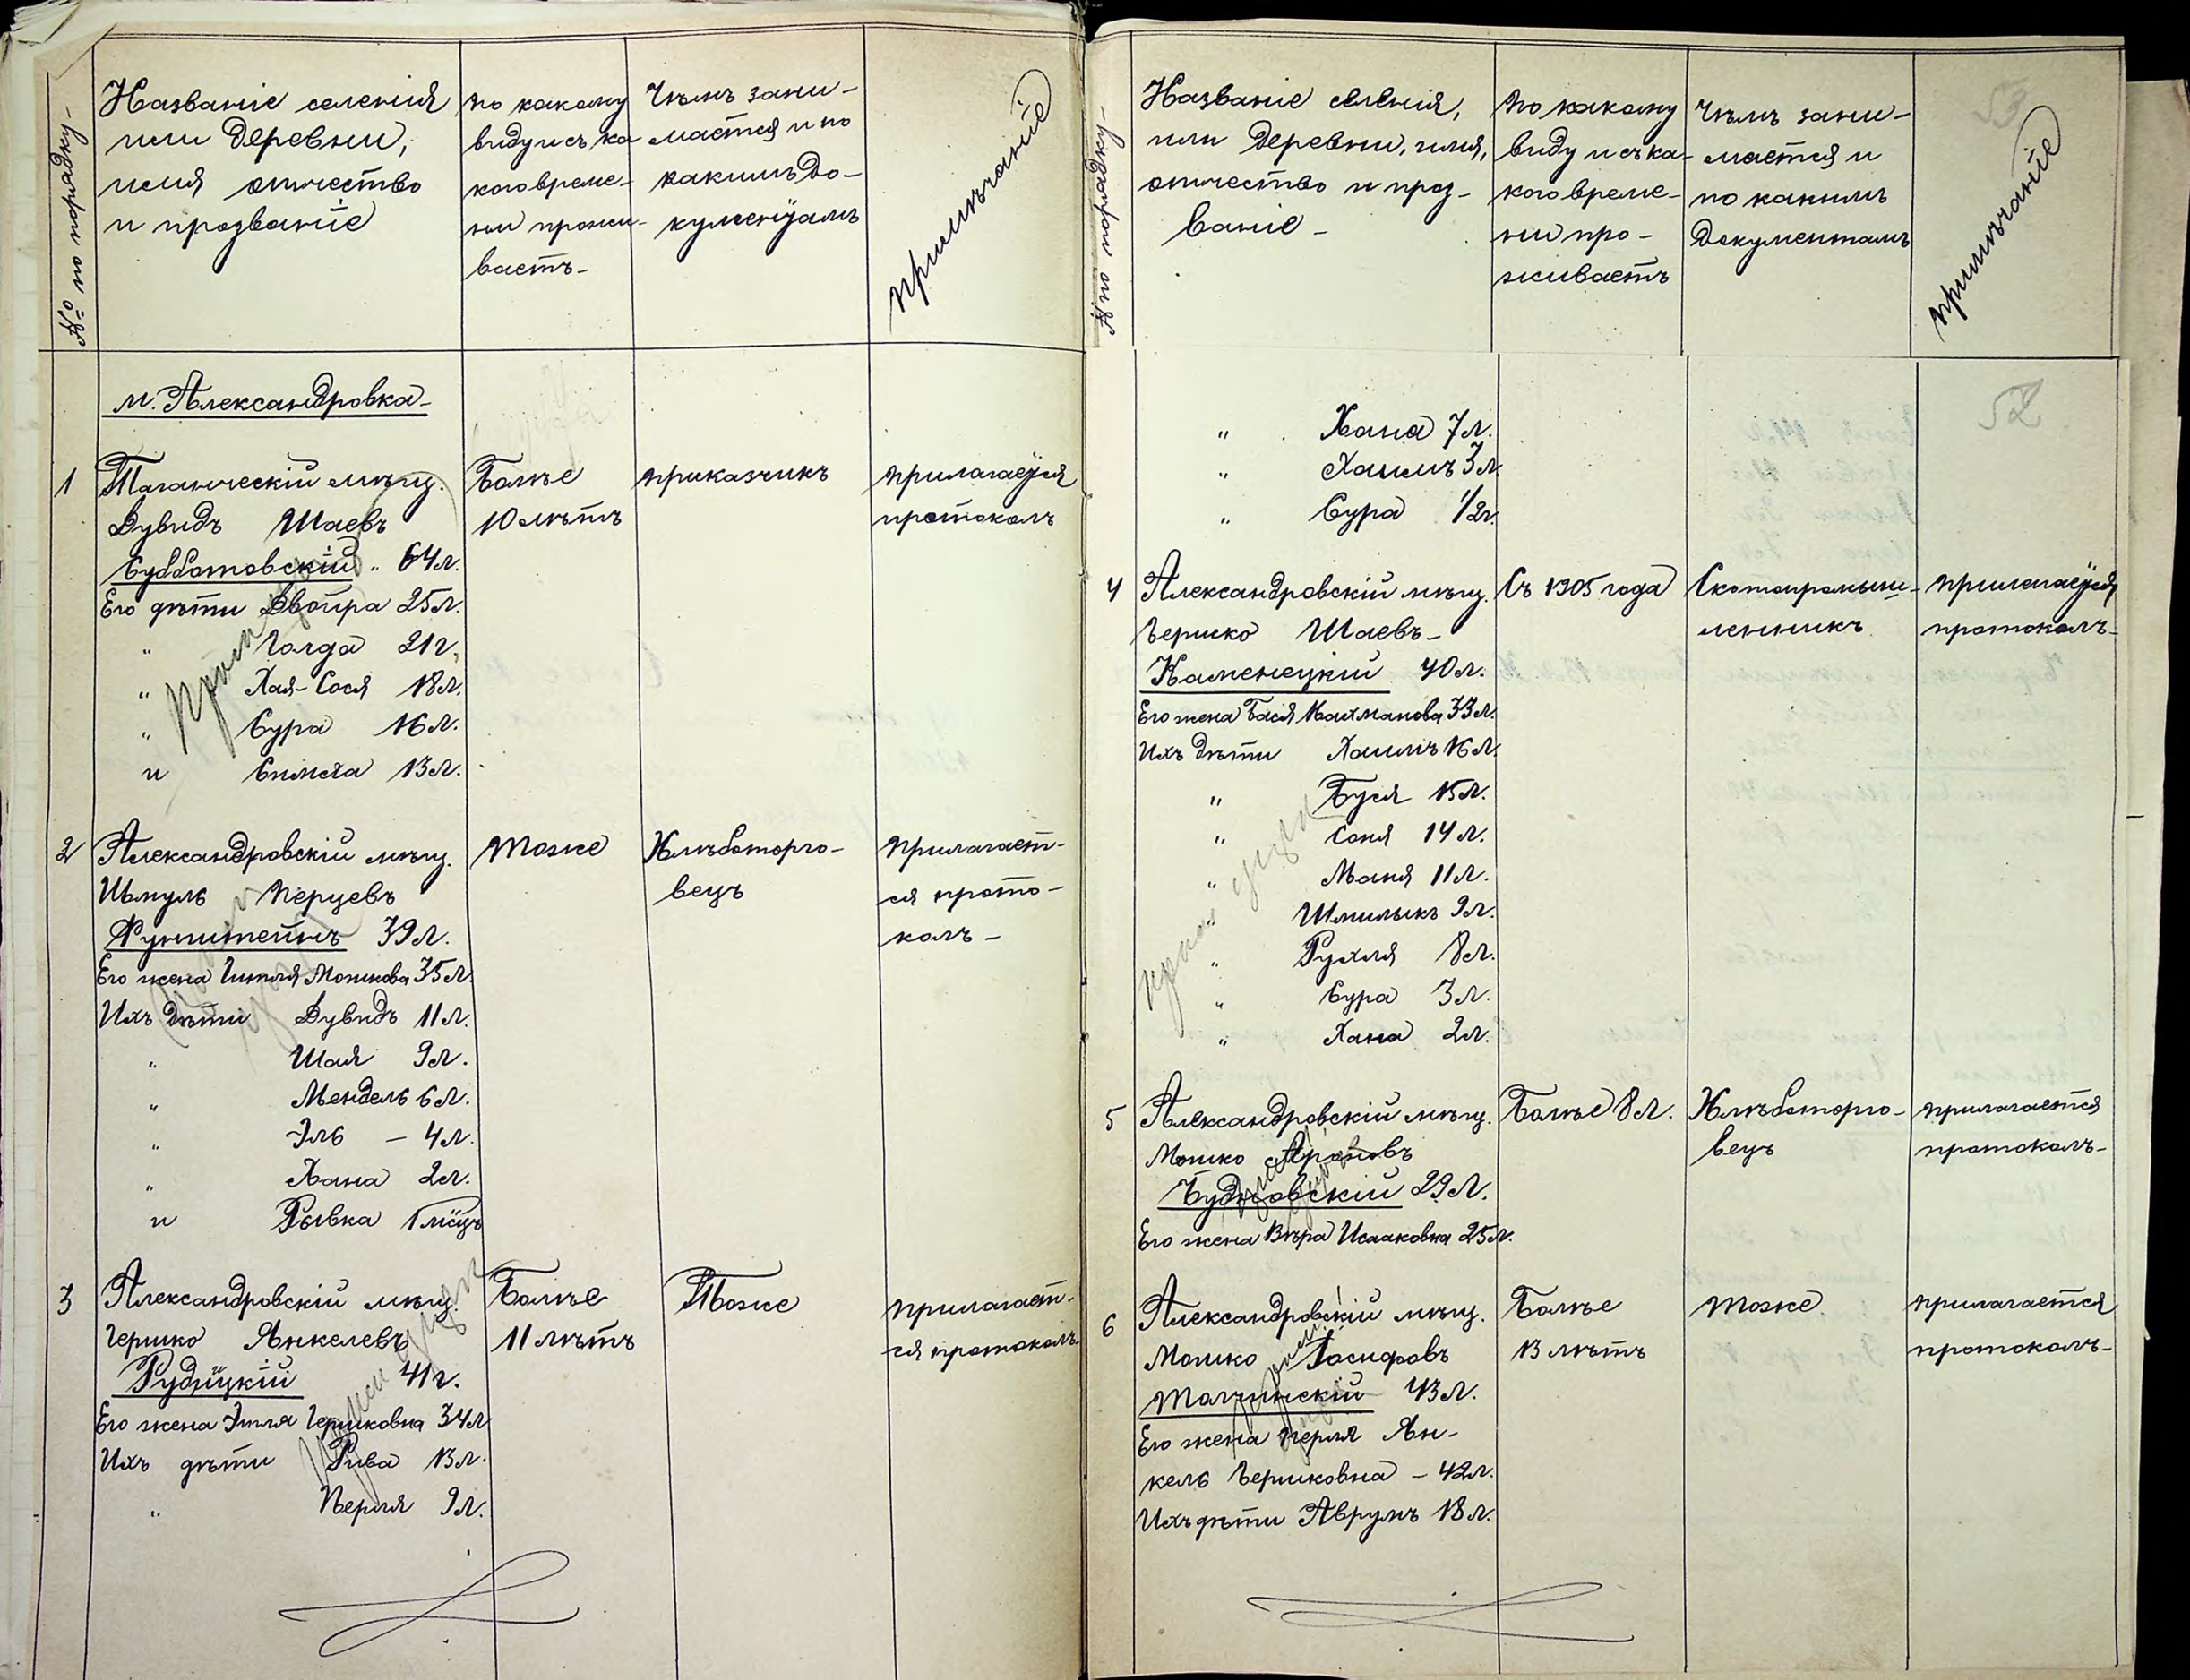 № по порядку-
Названіе селенія
или деревни,
имя отчество
и прозваніе
по какому
виду и съ ка-
кого време-
ни прожи-
ваетъ-
Чѣмъ зани-
мается и по
какимъ до-
кументамъ
примѣчаніе
м. Александровка-
1
Таганческій мѣщ.
Дувидъ Шаевъ
Субботовскій " 64 л.
Его дѣти Двойра 25 л.
" Голда 21 г.
" Хая-Сося 18 л.
" Сура 16 л.
и Симха 13 л.
Болѣе
10 лѣтъ
приказчикъ
прилагается
протоколъ
2
Александровскій мѣщ.
Шмуль Перцевъ
Фунштейнъ 39 л.
Его жена Гитля Мошкова 35 л.
Ихъ дѣти Дувидъ 11 л.
" Шая 9 л.
" Мендель 6 л.
" Эль - 4 л.
" Хана 2 л.
и Рывка 1 мѣсцъ
Тоже
Хлѣботорго-
вецъ
прилагает-
ся прото-
колъ-
3
Александровскій мѣщ.
Гершко Янкелевъ
Рудицкій 41 г.
Его жена Этля Гершковна 34 л
Ихъ дѣти Рива 13 л.
" Перля 9 л.
Болѣе
11 лѣтъ
Тоже
прилагает-
ся протоколъ
№ по порядку-
Названіе селенія,
или деревни, имя,
отчество и проз-
ваніе-
По какому
виду и съ ка-
кого време-
ни про-
живаетъ
Чѣмъ зани-
мается и
по какимъ
документамъ
примѣчаніе
52
" Хана 7 л.
" Хаимъ 3 л.
" Сура 1/2 г.
4
Александровскій мѣщ.
Берко Шаевъ-
Каменецкій 40 л.
Его жена Бася Нахманова 33 л.
Ихъ дѣти Хаимъ 16 л.
" Буся 15 л.
" Соня 14 л.
" Маня 11 л.
" Шмилыкъ 9 л.
" Рухля 8 л.
" Сура 3 л.
" Хана 2 л.
Съ 1905 года
Скотопромыш-
ленникъ
прилагается
протоколъ-
5
Александровскій мѣщ.
Мошко Ароновъ
Будновскій 29 л.
Его жена Вѣра Исааковна 25 л.
Болѣе 8 л.
Хлѣботорго-
вецъ
прилагается
протоколъ-
6
Александровскій мѣщ.
Мошко Іосифовъ
Толчинскій 43 л.
Его жена Перля Ян-
кель Берковна - 42 л.
Ихъ дѣти Аврумъ 18 л.
Болѣе
13 лѣтъ
Тоже
прилагается
протоколъ-